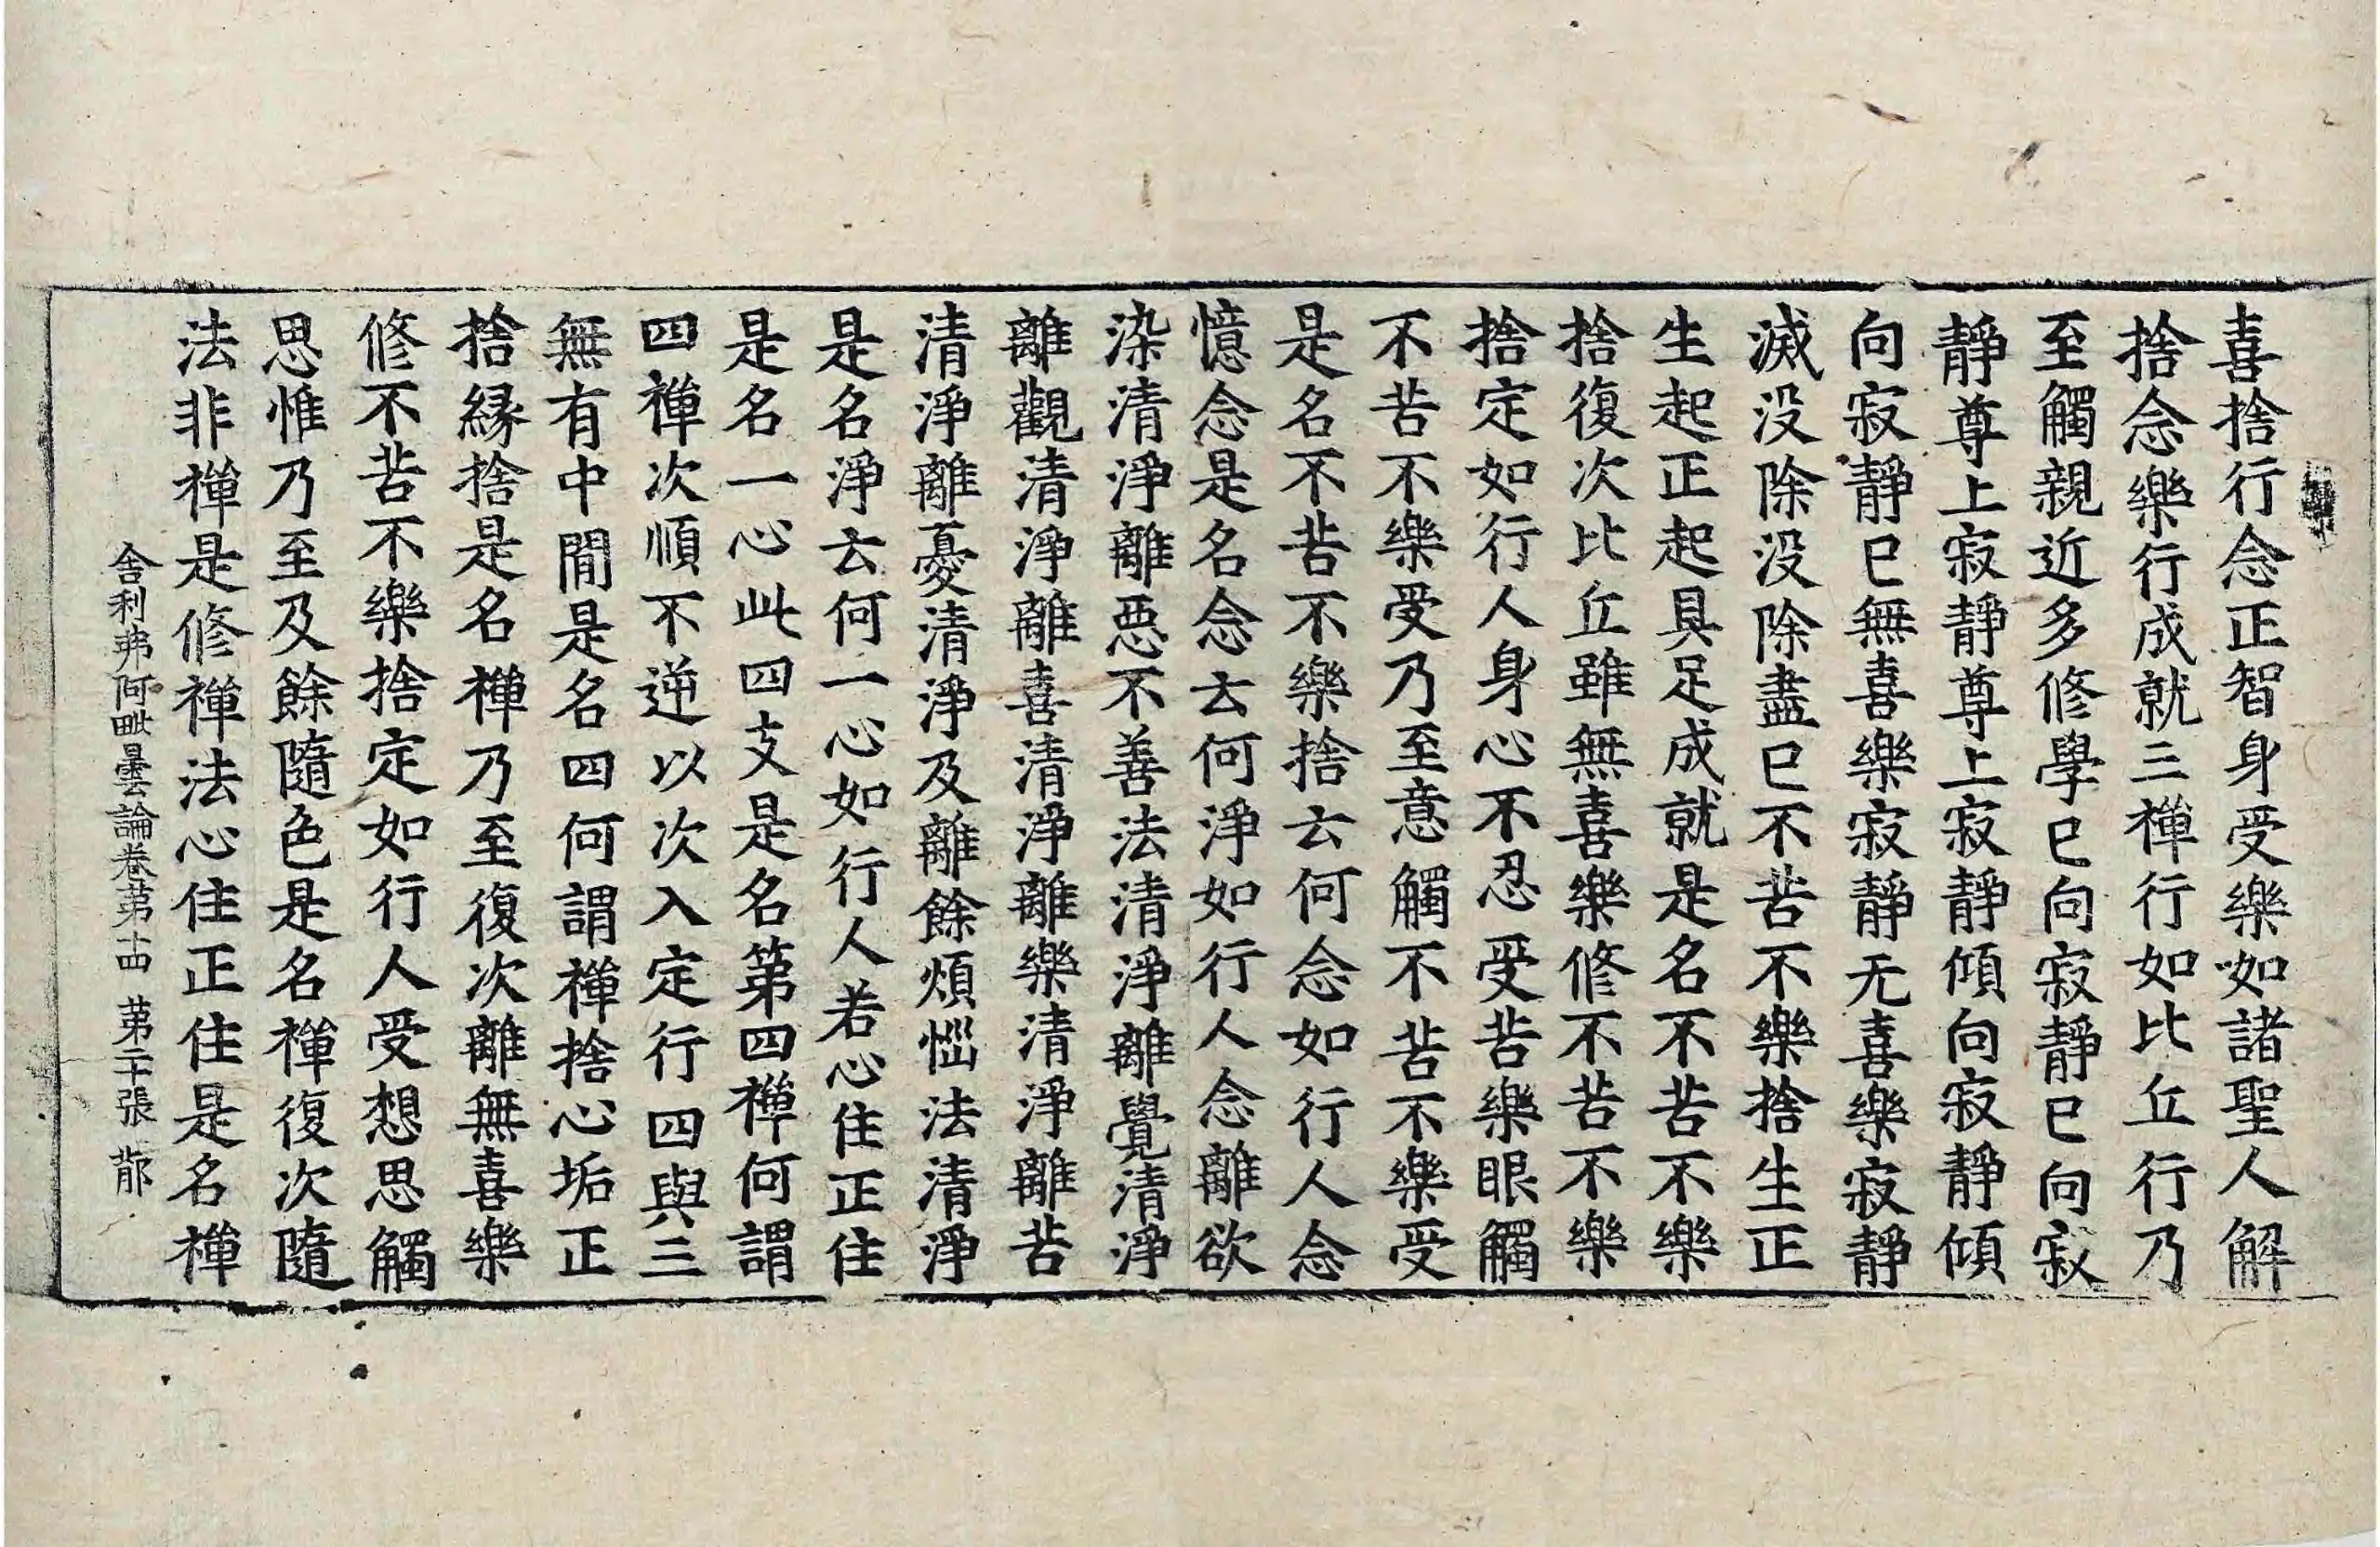 喜捨行念正智身受樂如諸聖人解
捨念樂行成就三禅行如比丘行乃
至觸親近多修學已向寂靜已向寂
靜尊上寂靜尊上寂靜傾向寂靜傾
向寂靜已無喜樂寂靜无喜樂寂靜
滅没除没除盡已不苦不樂捨生正
生起正起具足成就是名不苦不樂
捨復次比丘雖無喜樂修不苦不樂
捨定如行人身心不忍受苦樂眼觸
不苦不樂受乃至意觸不苦不樂受
是名不苦不樂捨云何念如行人念
憶念是名念云何淨如行人念離欲
染清淨離惡不善法清淨離覺清淨
離觀清淨離喜清淨離樂清淨離苦
清淨離憂清淨及離餘煩惱法清淨
是名淨云何一心如行人若心住正住
是名一心此四支是名第四禅何謂
四禅次順不逆以次入定行四與三
無有中間是名四何謂禅捨心垢正
捨緣捨是名禅乃至復次離無喜樂
修不苦不樂捨定如行人受想思觸
思惟乃至及餘隨色是名禅復次隨
法非禅是修禅法心住正住是名禅
舍利弗阿毗曇論卷第十四 第二十張 䣊